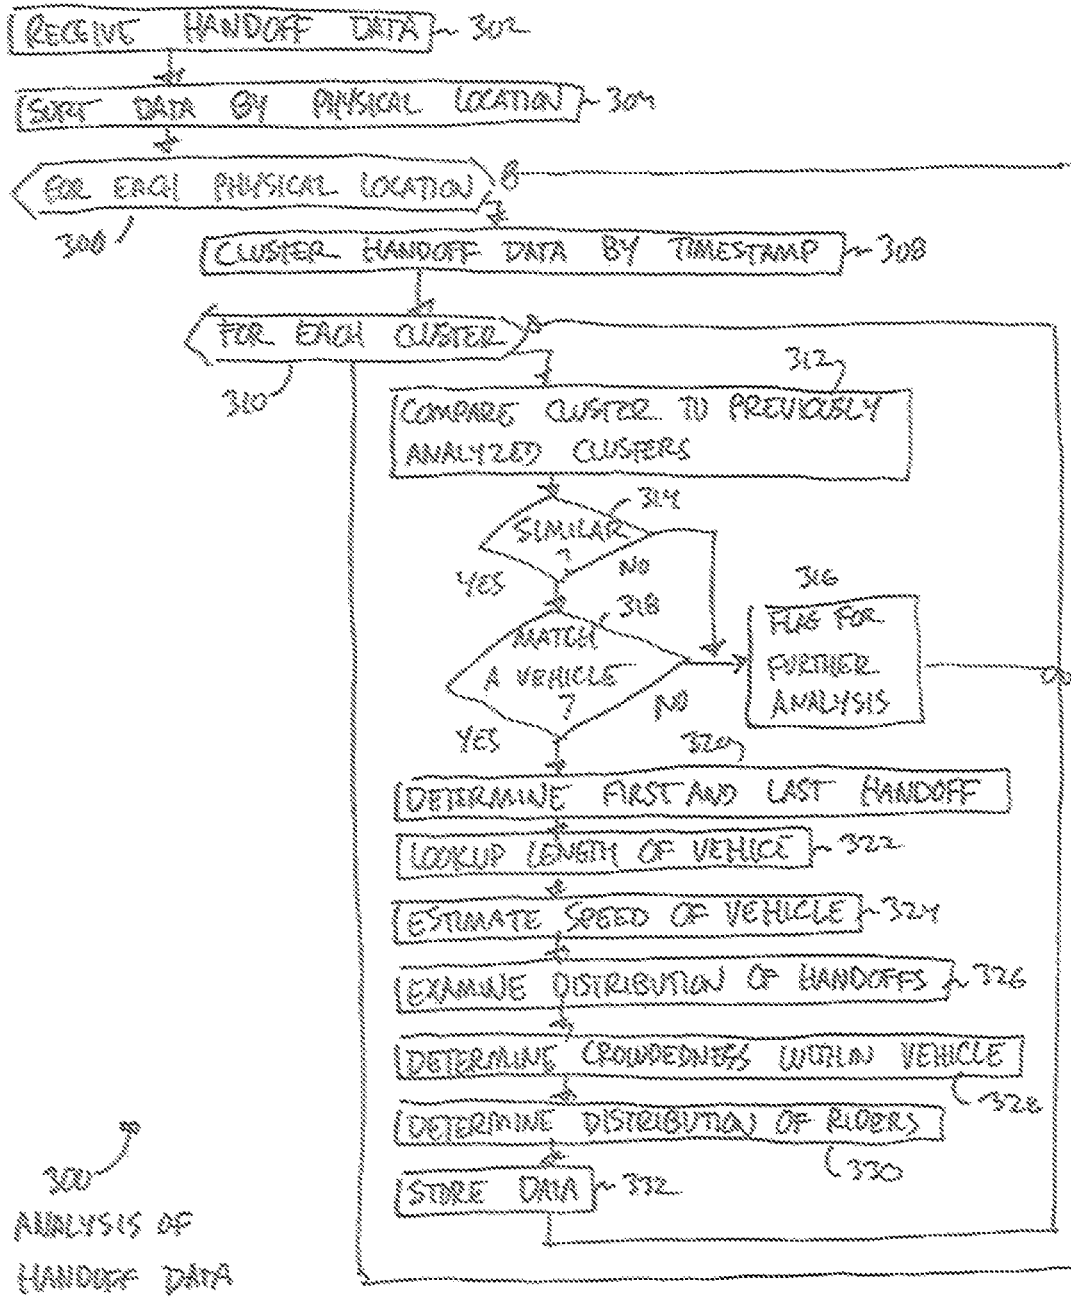 RECEIVE HANDOFF DATA 302
SORT DATA BY PHYSICAL LOCATION 304
FOR EACH PHYSICAL LOCATION
306
CLUSTER HANDOFF DATA BY TIMESTAMP 308
FOR EACH CLUSTER
310
312
COMPARE CLUSTER TO PREVIOUSLY
ANALYZED CLUSTERS
314
SIMILAR
?
YES
NO
316
FLAG FOR
FURTHER
ANALYSIS
318
MATCH
A VEHICLE
?
YES
NO
320
DETERMINE FIRST AND LAST HANDOFF
LOOKUP LENGTH OF VEHICLE 322
ESTIMATE SPEED OF VEHICLE 324
EXAMINE DISTRIBUTION OF HANDOFFS 326
DETERMINE CROWDEDNESS WITHIN VEHICLE
328
DETERMINE DISTRIBUTION OF RIDERS
330
STORE DATA 332
300
ANALYSIS OF
HANDOFF DATA